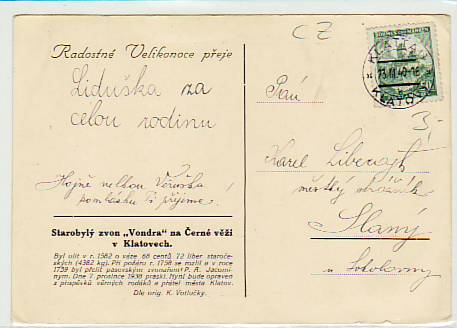 CZ
Radostné Velikonoce přeje
Liduška za
celou rodinu
Hojně
Veruška
pomlásku si přijeme.
Starobylý zvon „Vondra" na Černé věži
v Klatovech.
Byl ulit v r. 1582 o váze 68 centů 72 liber staroče-
ských (4382 kg). Při požáru r. 1758 se rozlil a v roce
1759 byl přelit pasovským zvonařem P. R. Jacomi-
nym. Dne 7. prosince 1938 praskl. Nyní bude opraven
z příspěvků věrných rodáků a přátel města Klatov.
Dle orig. K. Votlučky.
KLATOVY
KLATOVY
Pán
3-
Karel
městský
Slaný
u Sokolovny